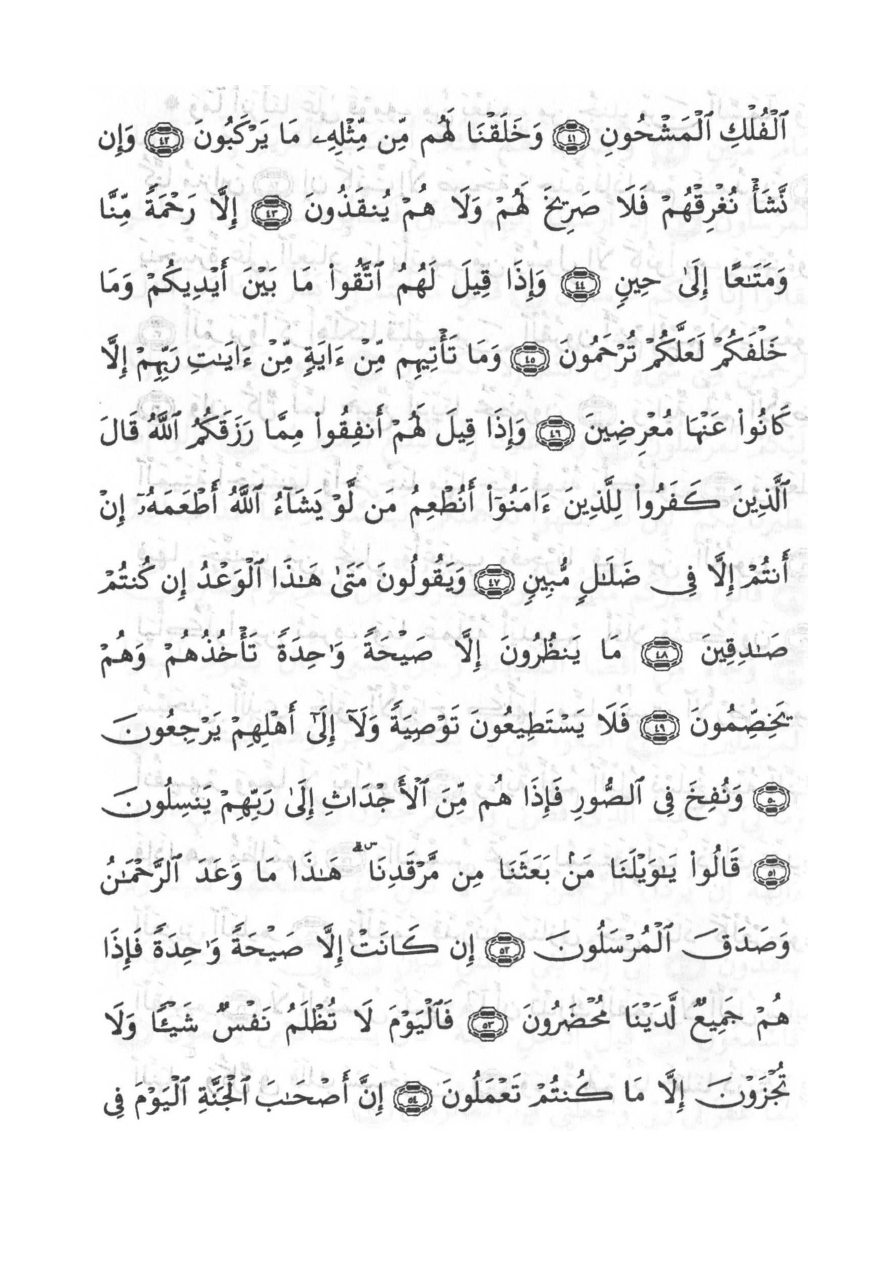 ٱلۡفُلۡكِ ٱلۡمَشۡحُونِ ٤١ وَخَلَقۡنَا لَهُم مِّن مِّثۡلِهِۦ مَا يَرۡكَبُونَ ٤٢ وَإِن
نَّشَأۡ نُغۡرِقۡهُمۡ فَلَا صَرِيخَ لَهُمۡ وَلَا هُمۡ يُنقَذُونَ ٤٣ إِلَّا رَحۡمَةٗ مِّنَّا
وَمَتَٰعًا إِلَىٰ حِينٖ ٤٤ وَإِذَا قِيلَ لَهُمُ ٱتَّقُواْ مَا بَيۡنَ أَيۡدِيكُمۡ وَمَا
خَلۡفَكُمۡ لَعَلَّكُمۡ تُرۡحَمُونَ ٤٥ وَمَا تَأۡتِيهِم مِّنۡ ءَايَةٖ مِّنۡ ءَايَٰتِ رَبِّهِمۡ إِلَّا
كَانُواْ عَنۡهَا مُعۡرِضِينَ ٤٦ وَإِذَا قِيلَ لَهُمۡ أَنفِقُواْ مِمَّا رَزَقَكُمُ ٱللَّهُ قَالَ
ٱلَّذِينَ كَفَرُواْ لِلَّذِينَ ءَامَنُوٓاْ أَنُطۡعِمُ مَن لَّوۡ يَشَآءُ ٱللَّهُ أَطۡعَمَهُۥٓ إِنۡ
أَنتُمۡ إِلَّا فِي ضَلَٰلٖ مُّبِينٖ ٤٧ وَيَقُولُونَ مَتَىٰ هَٰذَا ٱلۡوَعۡدُ إِن كُنتُمۡ
صَٰدِقِينَ ٤٨ مَا يَنظُرُونَ إِلَّا صَيۡحَةٗ وَٰحِدَةٗ تَأۡخُذُهُمۡ وَهُمۡ
يَخِصِّمُونَ ٤٩ فَلَا يَسۡتَطِيعُونَ تَوۡصِيَةٗ وَلَآ إِلَىٰٓ أَهۡلِهِمۡ يَرۡجِعُونَ
٥٠ وَنُفِخَ فِي ٱلصُّورِ فَإِذَا هُم مِّنَ ٱلۡأَجۡدَاثِ إِلَىٰ رَبِّهِمۡ يَنسِلُونَ
٥١ قَالُواْ يَٰوَيۡلَنَا مَنۢ بَعَثَنَا مِن مَّرۡقَدِنَاۜۗ هَٰذَا مَا وَعَدَ ٱلرَّحۡمَٰنُ
وَصَدَقَ ٱلۡمُرۡسَلُونَ ٥٢ إِن كَانَتۡ إِلَّا صَيۡحَةٗ وَٰحِدَةٗ فَإِذَا
هُمۡ جَمِيعٞ لَّدَيۡنَا مُحۡضَرُونَ ٥٣ فَٱلۡيَوۡمَ لَا تُظۡلَمُ نَفۡسٞ شَيۡـٔٗا وَلَا
تُجۡزَوۡنَ إِلَّا مَا كُنتُمۡ تَعۡمَلُونَ ٥٤ إِنَّ أَصۡحَٰبَ ٱلۡجَنَّةِ ٱلۡيَوۡمَ فِي